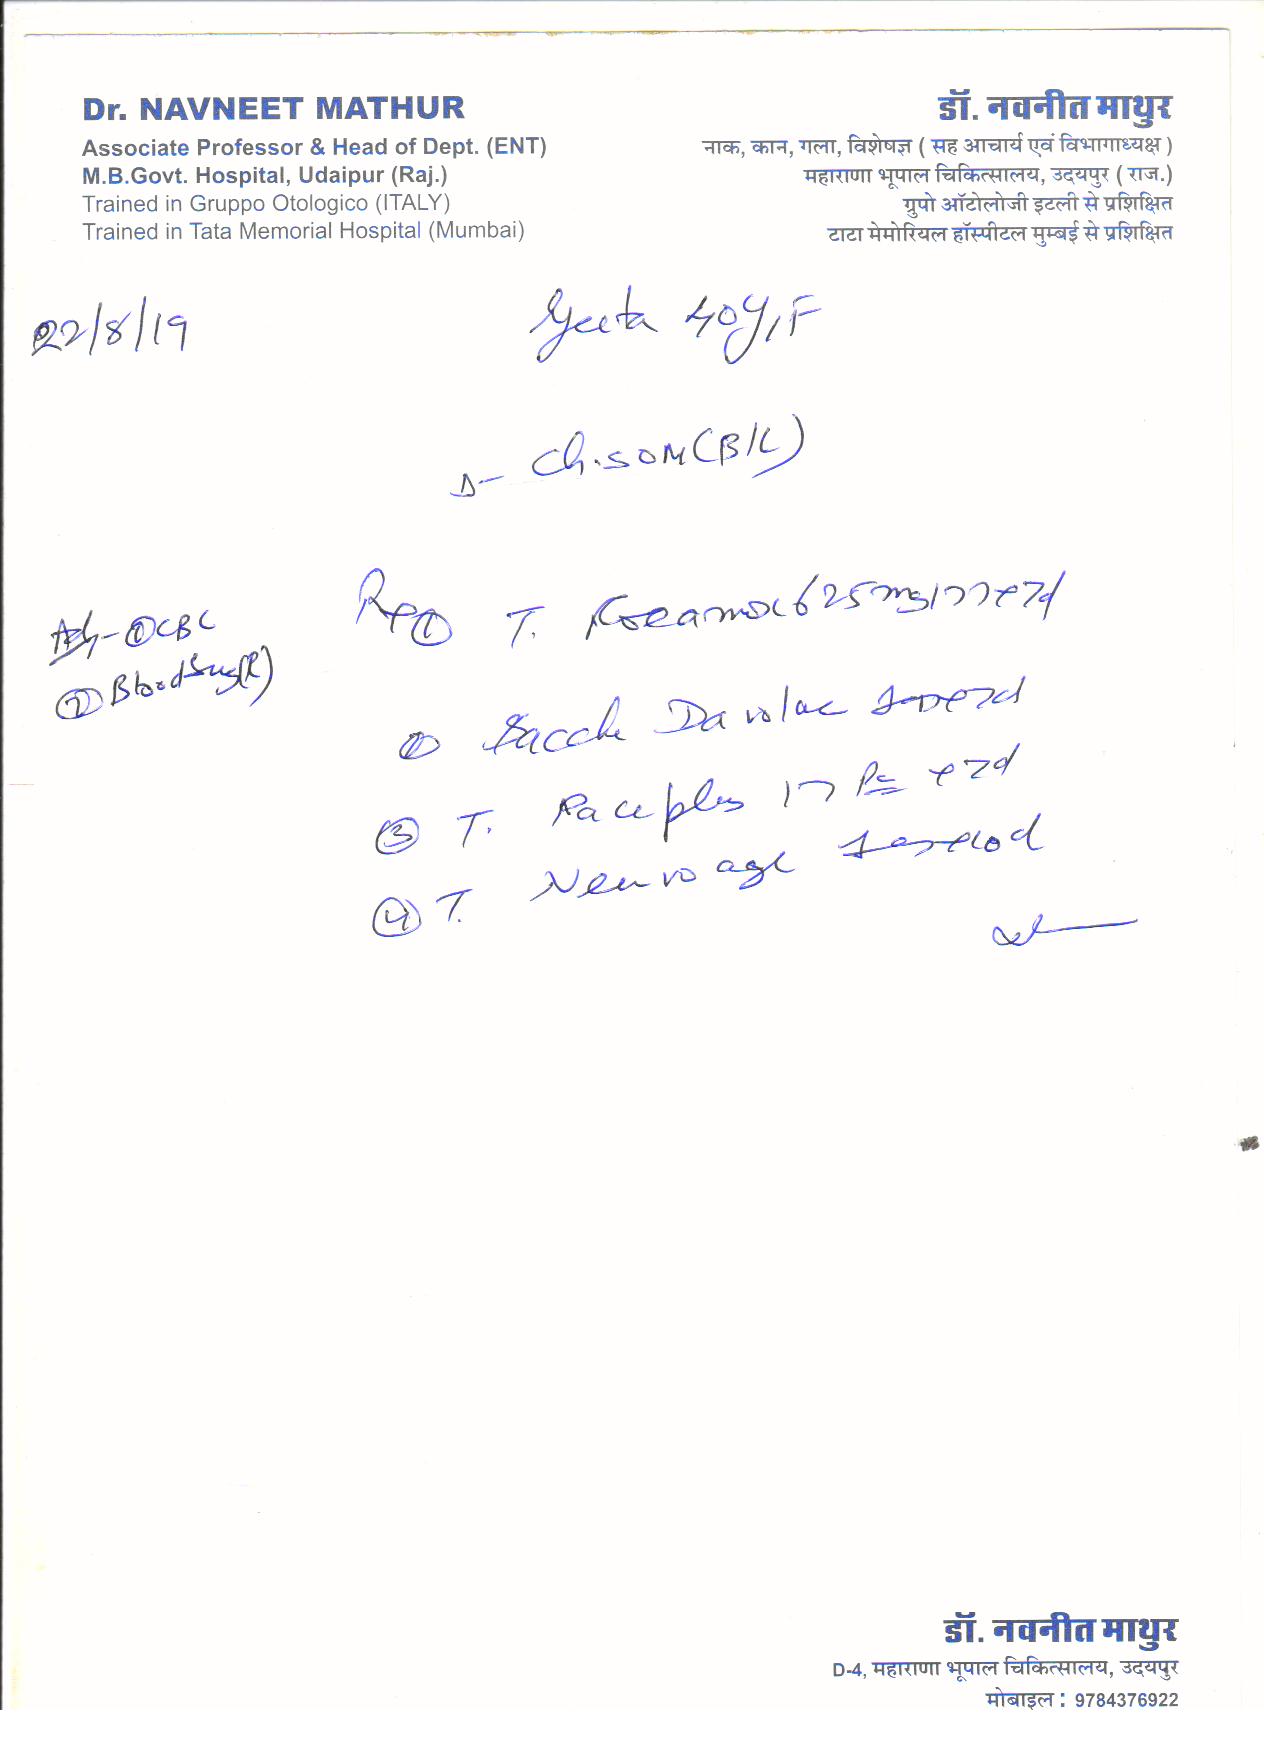 Dr. NAVNEET MATHUR
Associate Professor & Head of Dept. (ENT)
M.B.Govt. Hospital, Udaipur (Raj.)
Trained in Gruppo Otologico (ITALY)
Trained in Tata Memorial Hospital (Mumbai)
डॉ. नवनीत माथुर
नाक, कान, गला, विशेषज्ञ ( सह आचार्य एवं विभागाध्यक्ष )
महाराणा भूपाल चिकित्सालय, उदयपुर ( राज.)
ग्रुपो ऑटोलोजी इटली से प्रशिक्षित
टाटा मेमोरियल हॉस्पीटल मुम्बई से प्रशिक्षित
22/8/19
Geeta 40y, F
Ch.SOM (B/L)
① CBC
② Blood Sug(R)
① T. 625mg
② 
③ T.
④ T.
डॉ. नवनीत माथुर
D-4, महाराणा भूपाल चिकित्सालय, उदयपुर
मोबाइल : 9784376922